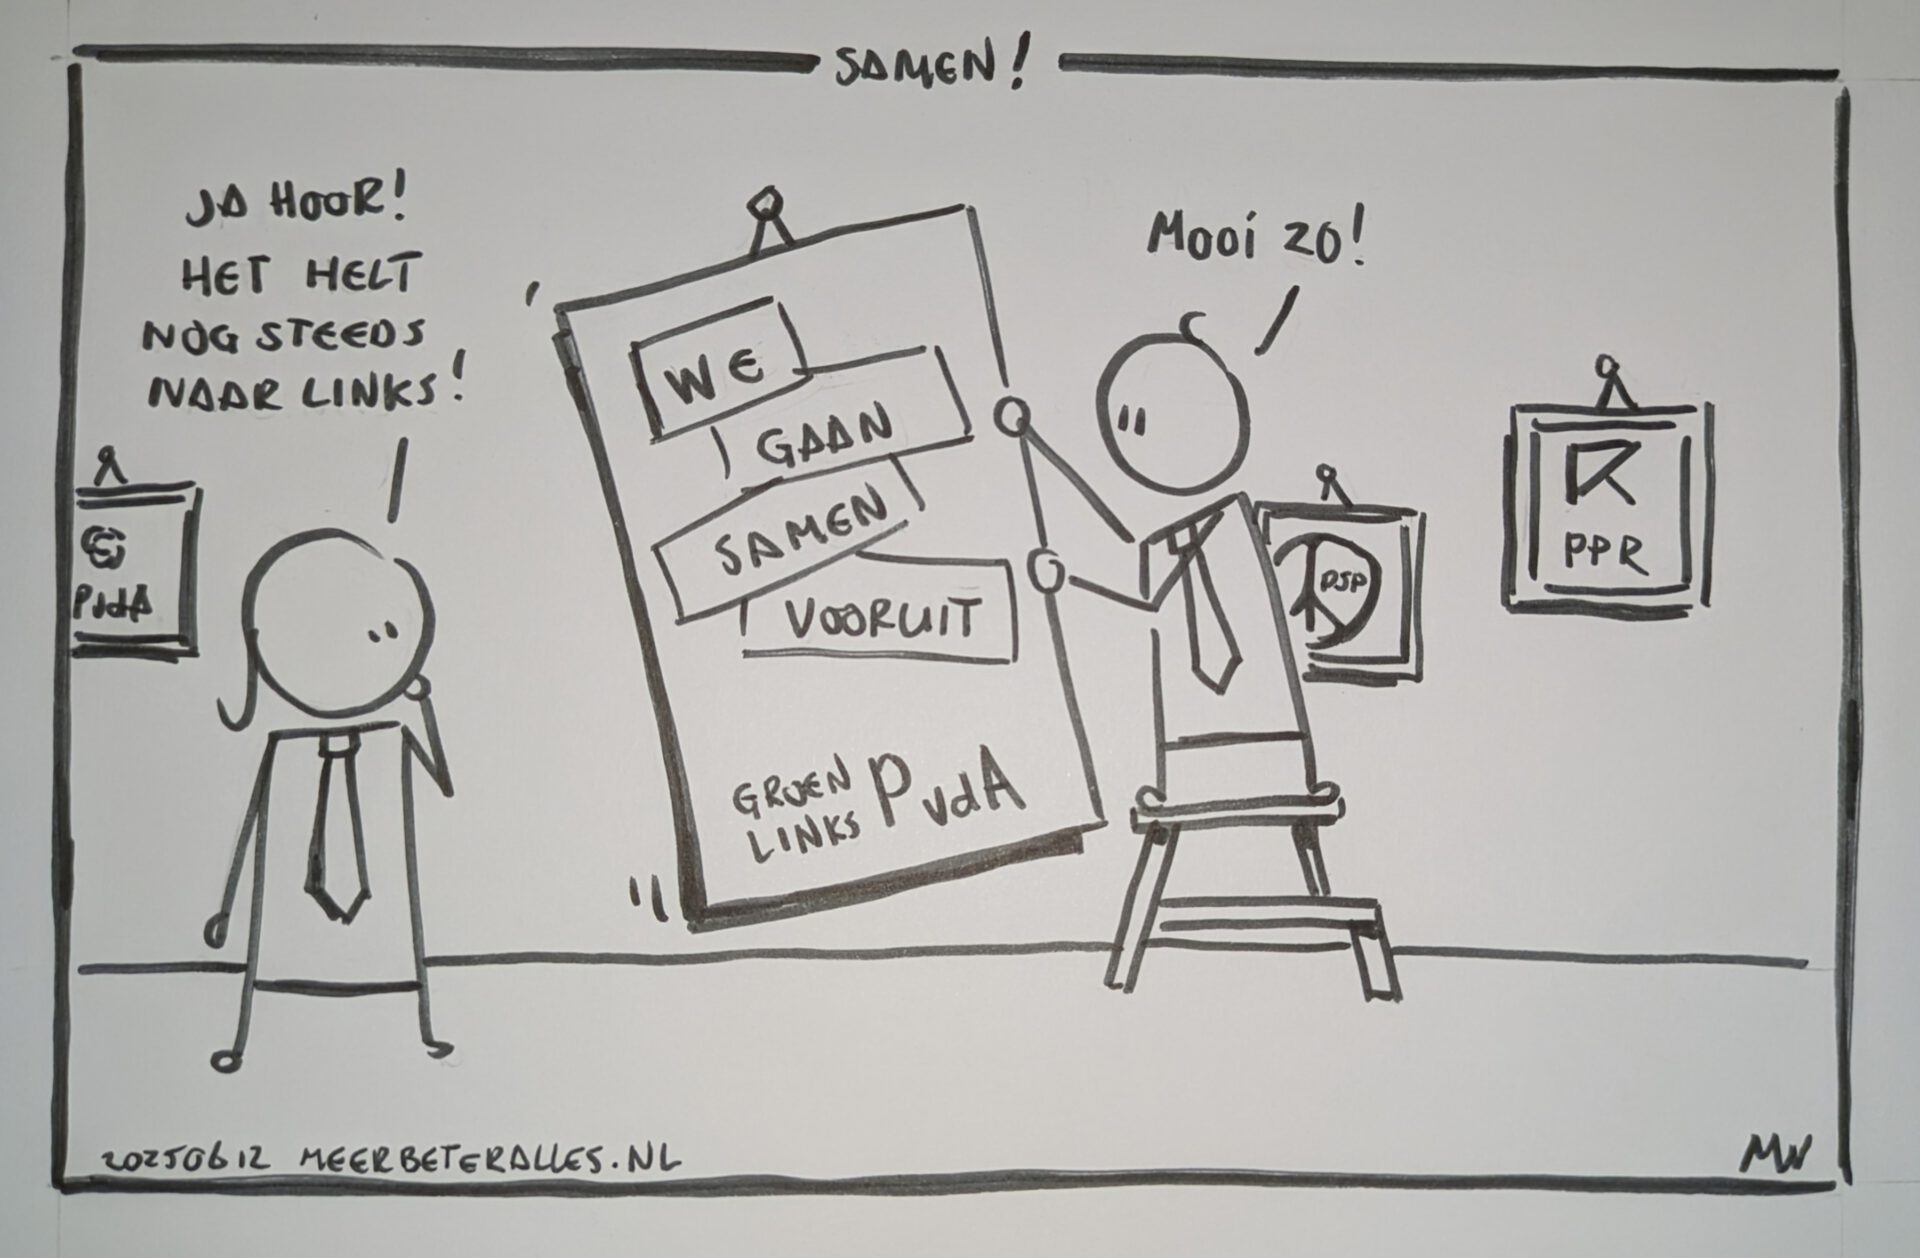 SAMEN!
JA HOOR!
HET HELT
NOG STEEDS
NAAR LINKS!
MOOi ZO!
WE
GAAN
SAMEN
VOORUIT
GROEN
LINKS PvdA
PvdA
PSP
PPR
20250612 MEERBETERALLES.NL
MW